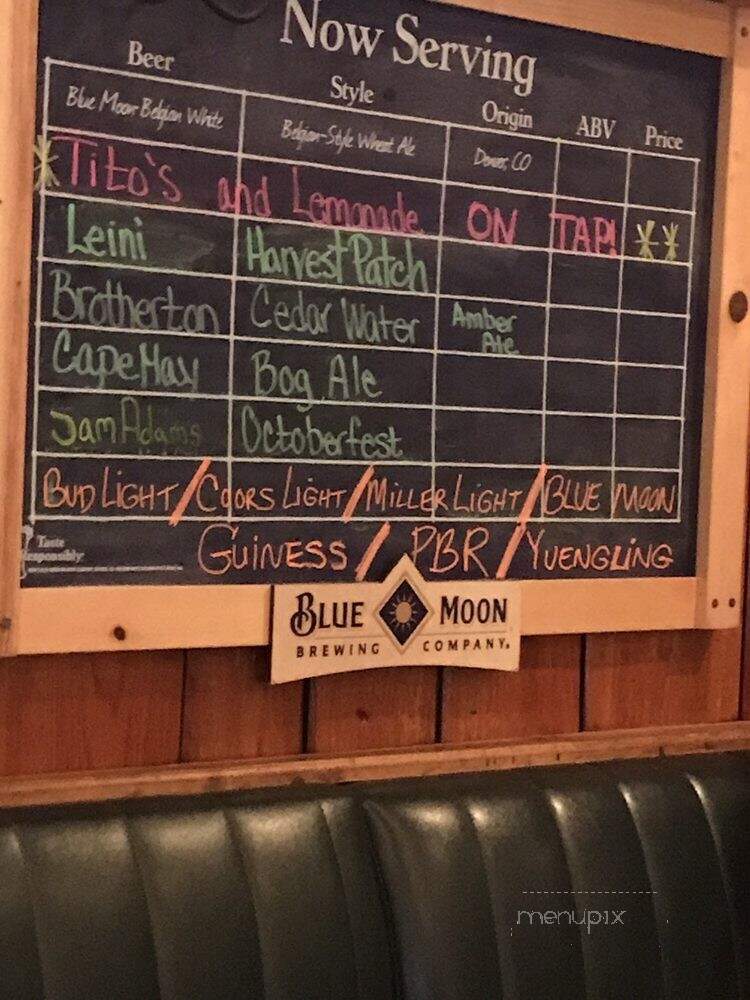 Now Serving
Beer Style Origin ABV Price
Blue Moon Belgian White Belgian-Style Wheat Ale Denver, CO
*Tito's and Lemonade ON TAP! **
Leini Harvest Patch
Brotherton Cedar Water Amber Ale
Cape May Bog Ale
Sam Adams Octoberfest
BUD LIGHT / COORS LIGHT / MILLER LIGHT / BLUE MOON
GUINESS / PBR / YUENGLING
Taste
Responsibly
BLUE MOON
BREWING COMPANY
menupix